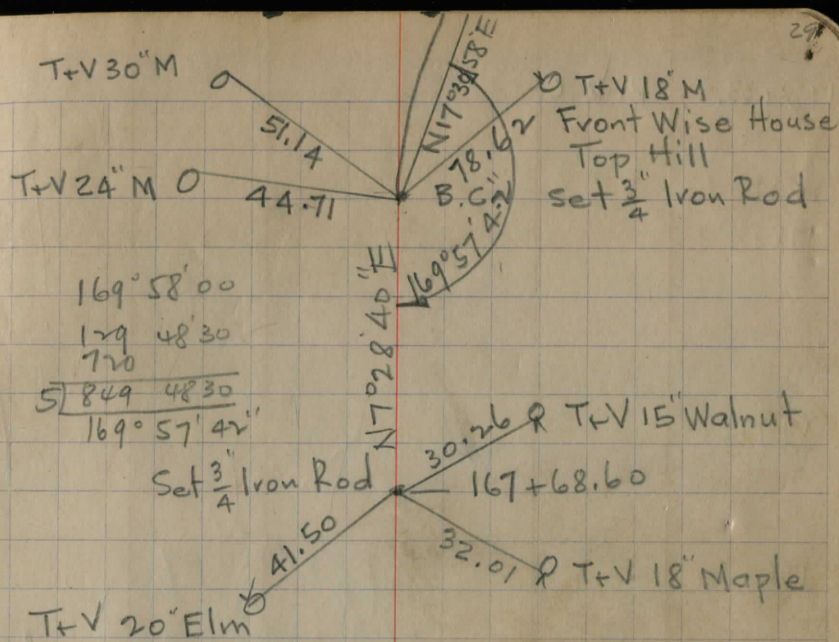 29
T+V 30" M
51.14
T+V 24" M
44.71
N17°30'58"E
78.62
B.C.
169°57'42"
T+V 18" M
Front Wise House
Top Hill
set 3/4" Iron Rod
N7°28'40"E
169° 58' 00
129 48' 30
720
5 849 48 30
169° 57' 42"
30.26
T+V 15" Walnut
Set 3/4" Iron Rod
167+68.60
41.50
32.01
T+V 18" Maple
T+V 20" Elm